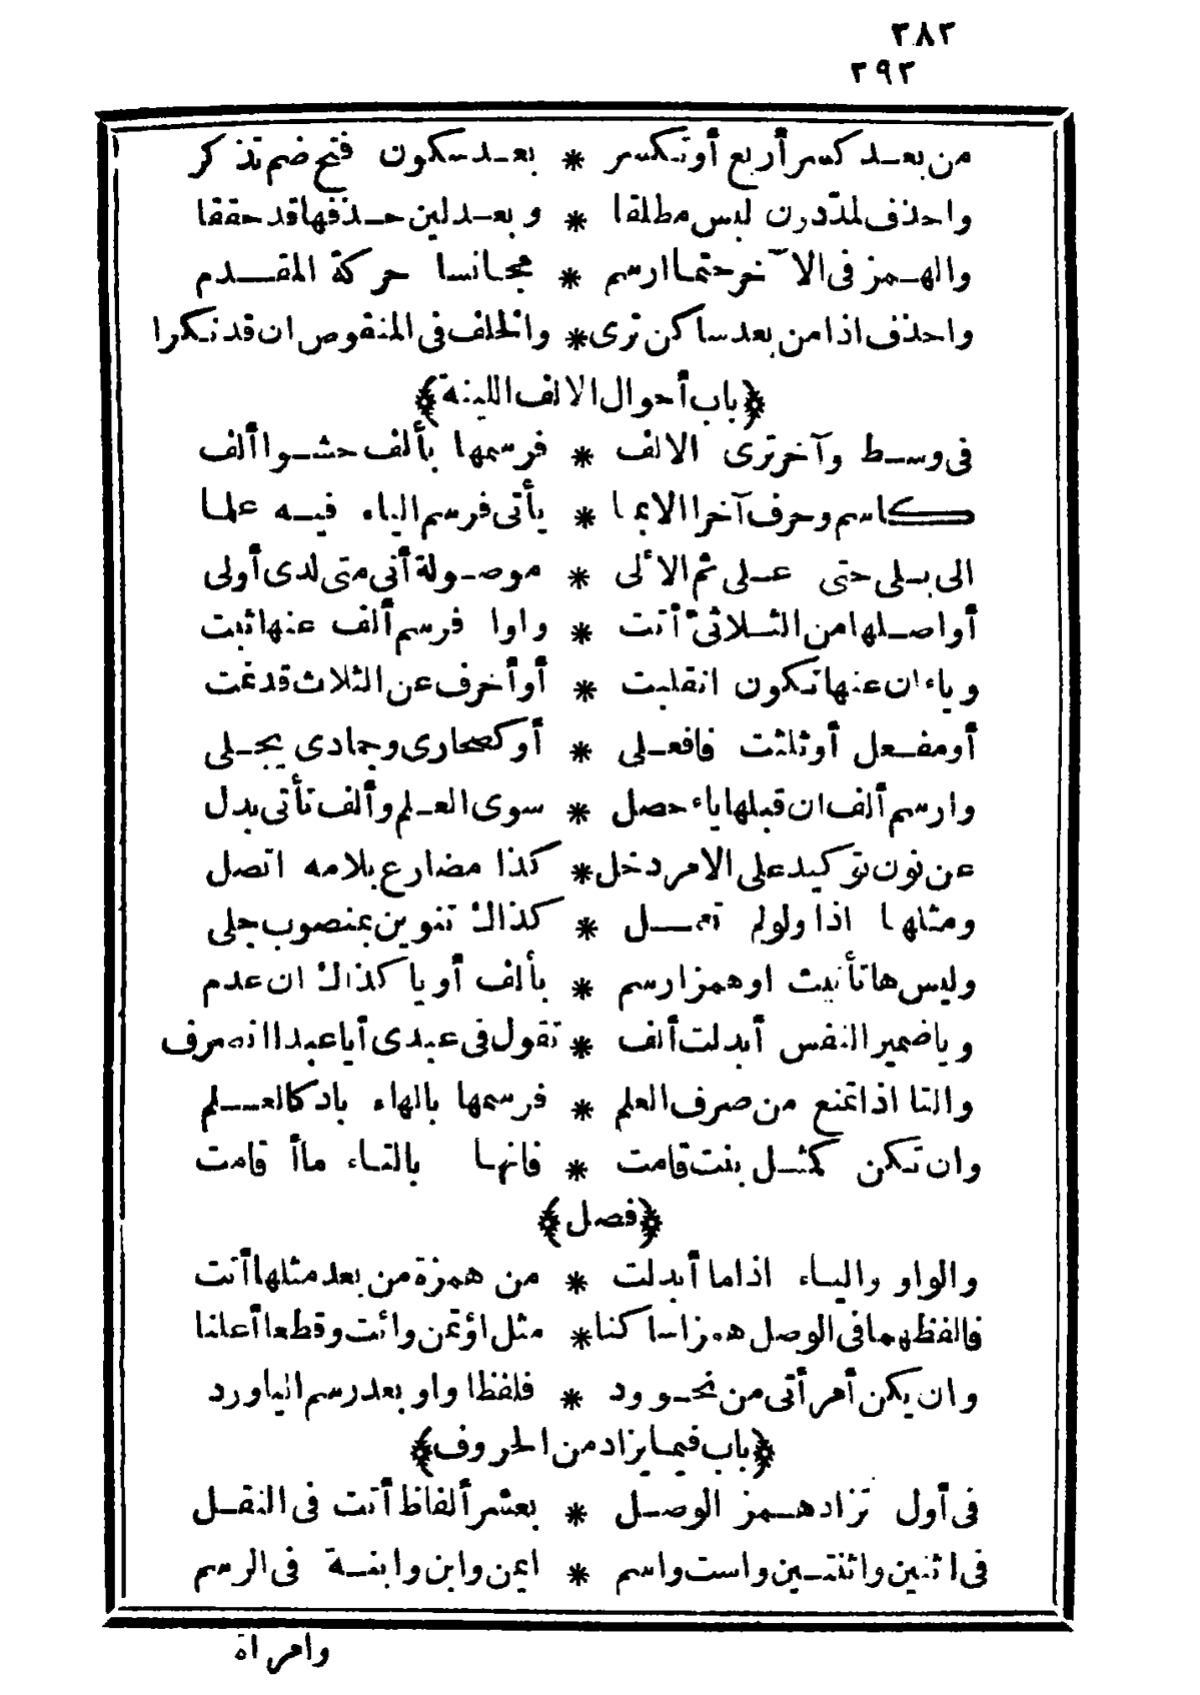 ٣٨٢
٢٩٢
من بعد كسر أربع أو تكسر * بعد سكون فتح ضم تذكر
واحذف لمدّدرن ليس مطلقا * وبعد لين حذفها قد حققا
والهمز فى الآخر حتما ارسم * مجانسا حركة المقدم
واحذف اذا من بعد ساكن ترى * والخلف فى المنقوص ان قد نكرا
﴿باب أحوال الالف اللينة﴾
فى وسط وآخر ترى الالف * فرسمها بألف حشوا ألف
كاسم وحرف آخرا الا بما * يأتى فرسم الياء فيه علما
الى بلى حتى على ثم الألى * موصولة أنى متى لدى أولى
أو اصلها من الثلاثىّ أتت * واوا فرسم ألف عنها ثبت
وياء ان عنها تكون انقلبت * أو أخرف عن الثلاث قد غت
أو مفعل أو ثلثت فافعلى * أو كصحارى وجمادى يجلى
وارسم ألف ان قبلها ياء حصل * سوى العلم وألف تأتى بدل
عن نون توكيد على الامر دخل * كذا مضارع بلامه اتصل
ومثلها اذا ولو لم تعمل * كذاك تنوين بمنصوب جلى
وليس ها تأنيث او همزا رسم * بألف أو يا كذاك ان عدم
ويا ضمير النفس أبدلت ألف * تقول فى عبدى أيا عبدا انصرف
والتا اذا تمنع من صرف العلم * فرسمها بالهاء باد كالعلم
وان تكن كمثل بنت قامت * فانها بالتاء ماأ قامت
﴿فصل﴾
والواو والياء اذا ما أبدلت * من همزة من بعد مثلها أتت
فالفظ بهما فى الوصل همزا ساكنا * مثل اؤتمن وائت وقطعا أعلنا
وان يكن أمر أتى من نحو ود * فلفظا واو بعد رسم اليا ورد
﴿باب فيما يزاد من الحروف﴾
فى أول تزاد همز الوصل * بعشر ألفاظ أتت فى النقل
فى اثنين واثنتين واست واسم * ايمن وابن وابنة فى الرسم
وامراة